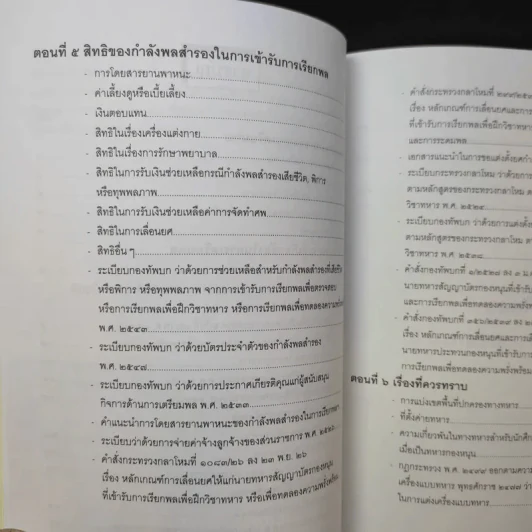 ตอนที่ ๕ สิทธิของกำลังพลสำรองในการเข้ารับการเรียกพล
- การโดยสารยานพาหนะ
- ค่าเลี้ยงดูหรือเบี้ยเลี้ยง
- เงินตอบแทน
- สิทธิในเรื่องเครื่องแต่งกาย
- สิทธิในเรื่องการรักษาพยาบาล
- สิทธิในการรับเงินช่วยเหลือกรณีกำลังพลสำรองเสียชีวิต, พิการ
หรือทุพพลภาพ
- สิทธิในการรับเงินช่วยเหลือค่าการจัดทำศพ
- สิทธิในการเลื่อนยศ
- สิทธิอื่น ๆ
- ระเบียบกองทัพบก ว่าด้วยการช่วยเหลือสำหรับกำลังพลสำรองที่เสียชีวิต
หรือพิการ หรือทุพพลภาพ จากการเข้ารับการเรียกพลเพื่อตรวจสอบ
หรือการเรียกพลเพื่อฝึกวิชาทหาร หรือการเรียกพลเพื่อทดลองความพรั่งพร้อม
พ.ศ. ๒๕๔๓
- ระเบียบกองทัพบก ว่าด้วยบัตรประจำตัวของกำลังพลสำรอง
พ.ศ. ๒๕๔๗
- ระเบียบกองทัพบก ว่าด้วยการประกาศเกียรติคุณแก่ผู้สนับสนุน
กิจการด้านการเตรียมพล พ.ศ. ๒๕๓๓
- คำแนะนำการโดยสารยานพาหนะของกำลังพลสำรองในการเรียกพล
- ระเบียบว่าด้วยการจ่ายค่าจ้างลูกจ้างของส่วนราชการ พ.ศ. ๒๕๒๖
- คำสั่งกระทรวงกลาโหมที่ ๑๐๘๓/๒๖ ลง ๒๓ พ.ย. ๒๖
เรื่อง หลักเกณฑ์การเลื่อนยศให้แก่นายทหารสัญญาบัตรกองหนุน
ที่เข้ารับการเรียกพลเพื่อฝึกวิชาทหาร หรือเพื่อทดลองความพรั่งพร้อม
- คำสั่งกระทรวงกลาโหมที่
เรื่อง หลักเกณฑ์การเลื่อนยศและการ
ที่เข้ารับการเรียกพลเพื่อฝึกวิชาทหาร
และการระดมพล
- เอกสารแนะนำในการขอแต่งตั้งยศ
- ระเบียบกระทรวงกลาโหม ว่าด้วยการ
ตามหลักสูตรของกระทรวงกลาโหม
วิชาทหาร พ.ศ. ๒๕๒๔
- ระเบียบกองทัพบก ว่าด้วยการแต่งตั้ง
ตามหลักสูตรของกระทรวงกลาโหม
วิชาทหาร พ.ศ. ๒๕๓๘
- คำสั่งกองทัพบกที่ ๑/๒๕๒๘ ลง ๓
นายทหารสัญญาบัตรกองหนุนที่เข้ารับ
และการเรียกพลเพื่อทดลองความพรั่ง
- คำสั่งกองทัพบกที่ ๓๕๖/๒๕๓๙ ลง
เรื่อง หลักเกณฑ์การเลื่อนยศและการ
นายทหารประทวนกองหนุนที่เข้ารับ
การเรียกพลเพื่อทดลองความพรั่งพร้อม
ตอนที่ ๖ เรื่องที่ควรทราบ
- การแบ่งเขตพื้นที่ปกครองทางทหาร
- ที่ตั้งค่ายทหาร
- ความเกี่ยวพันในทางทหารสำหรับนักศึกษา
เมื่อเป็นทหารกองหนุน
- กฎกระทรวง พ.ศ. ๒๔๙๙ ออกตามความ
เครื่องแบบทหาร พุทธศักราช ๒๔๗๗
ในการแต่งเครื่องแบบทหาร